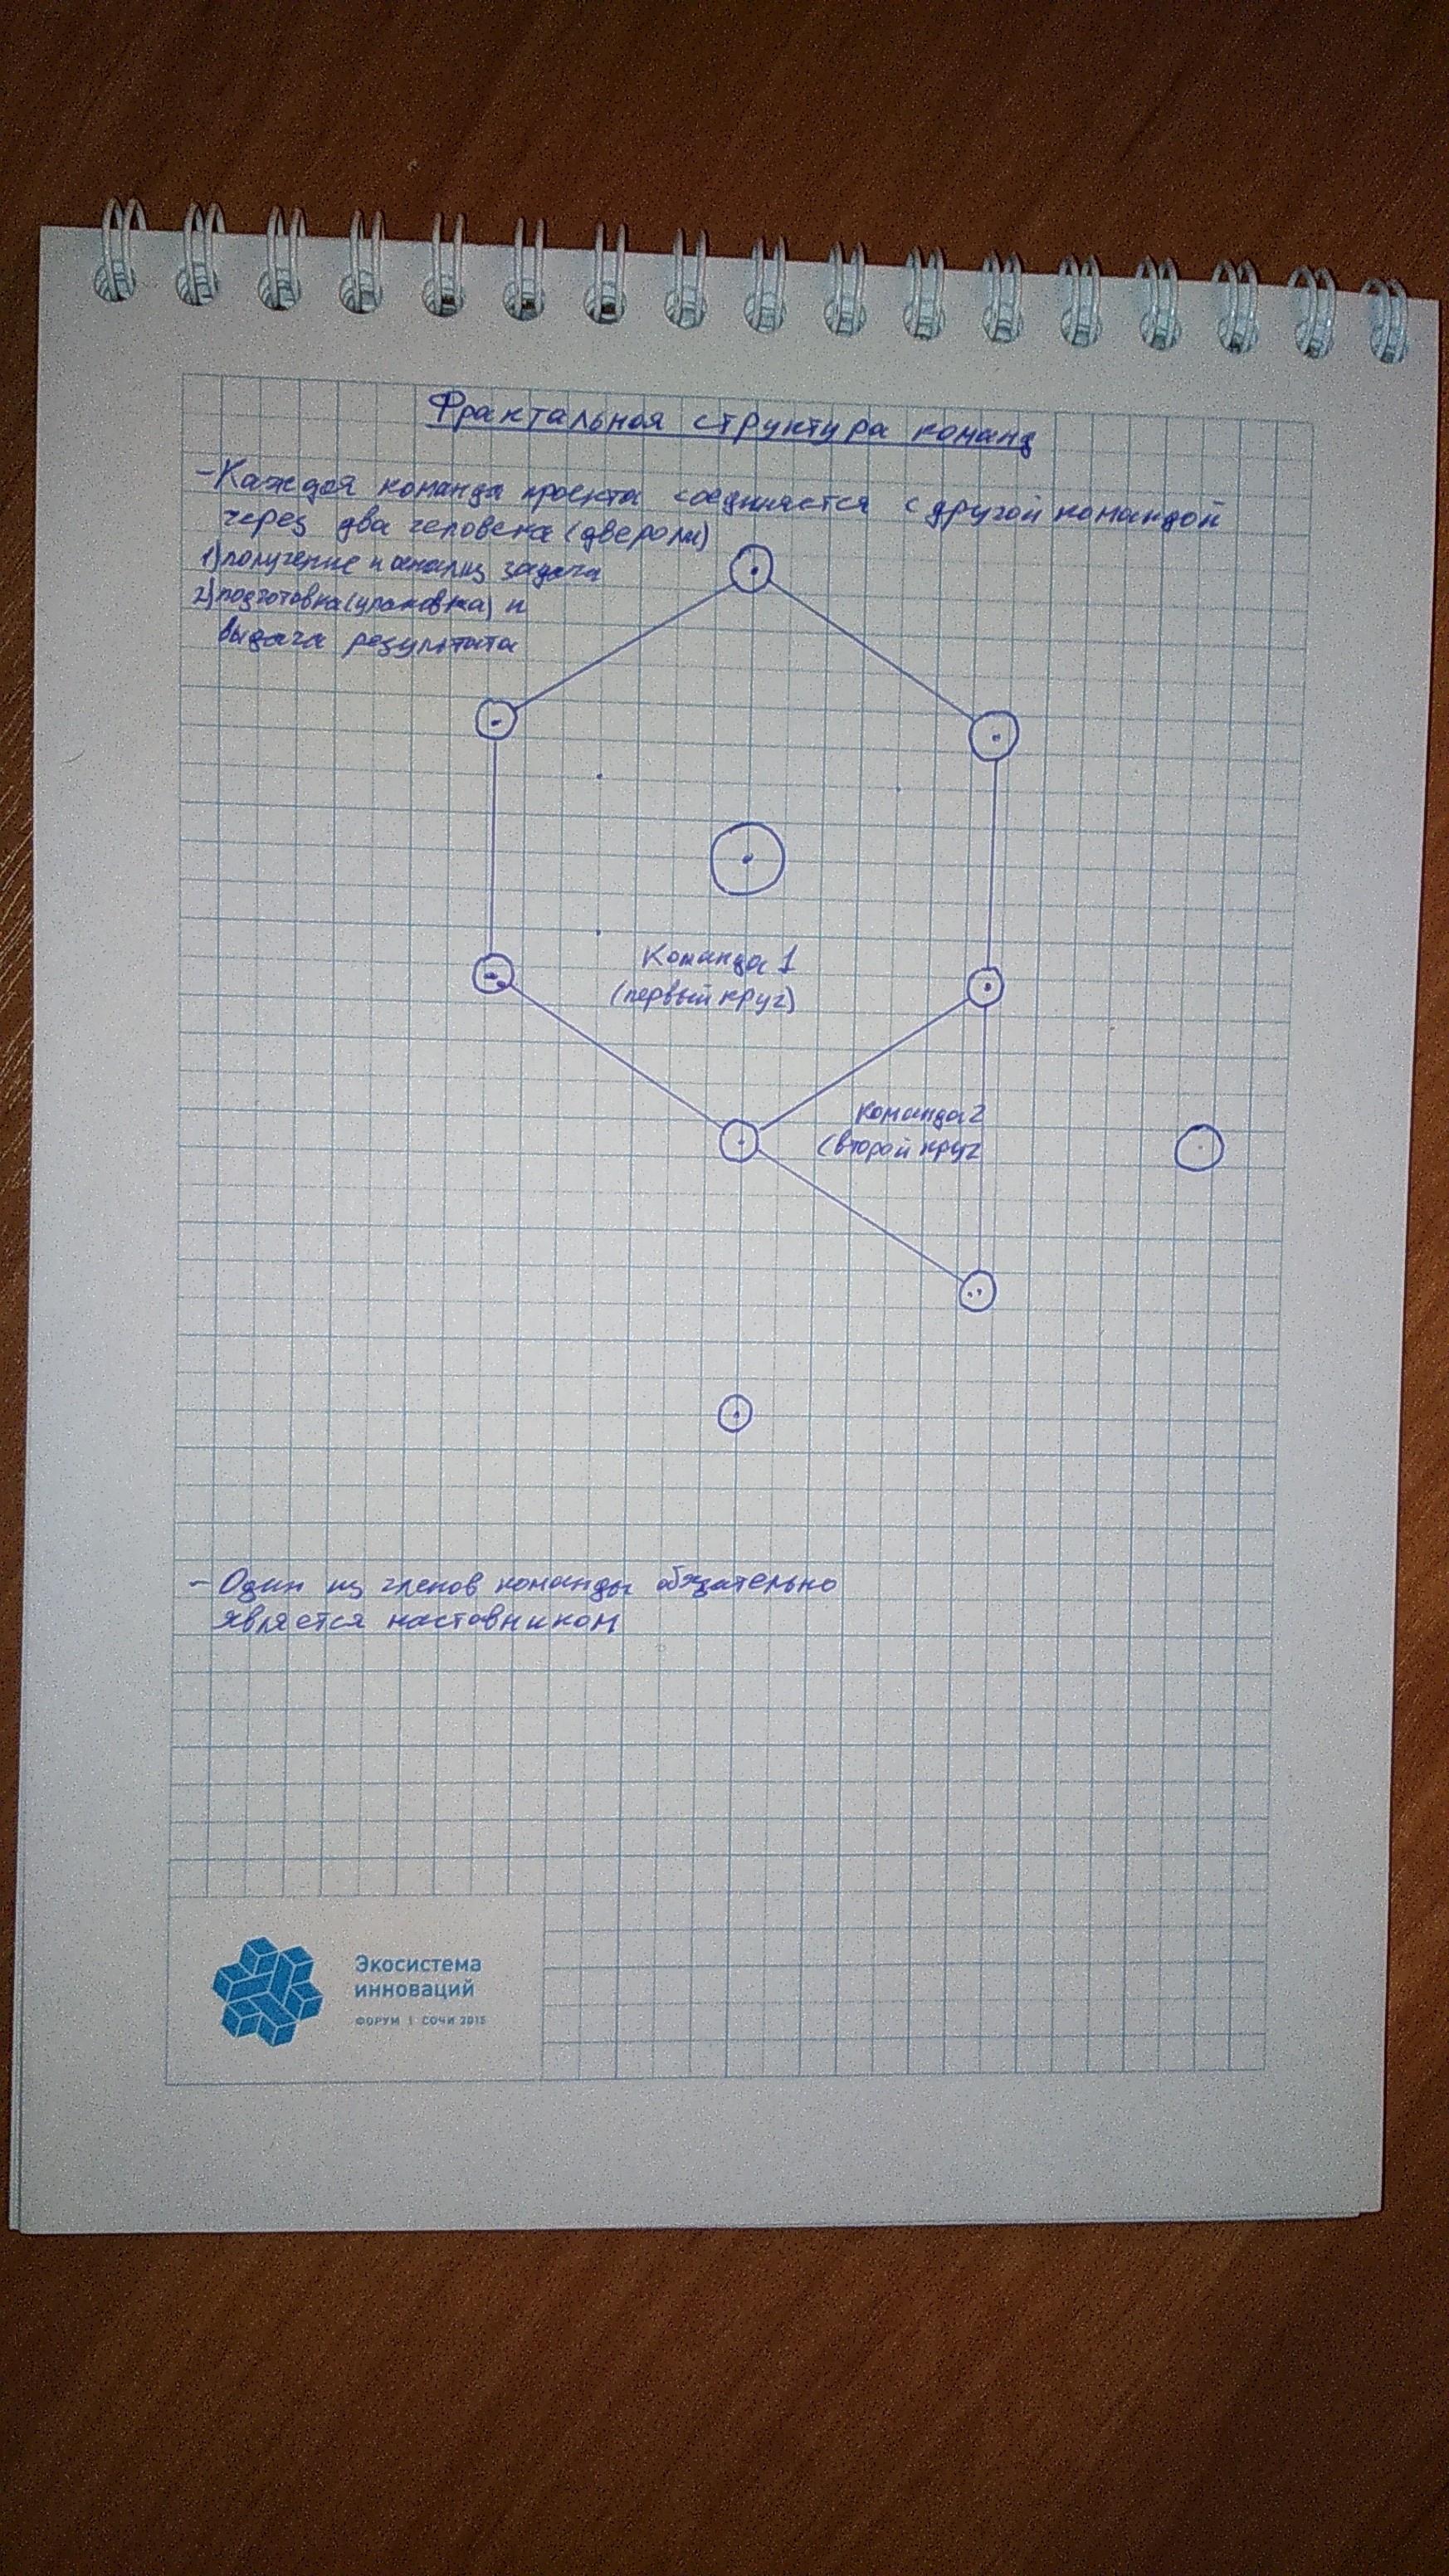 Фрактальная структура команд
- Каждая команда проекта соединяется с другой командой
через два человека (две роли)
1) получение и анализ задача
2) подготовка (упаковка) и
выдача результата
Команда 1
(первый круг)
Команда 2
(второй круг
- Один из членов команды обязательно
является наставником
Экосистема
инноваций
ФОРУМ | СОЧИ 2015